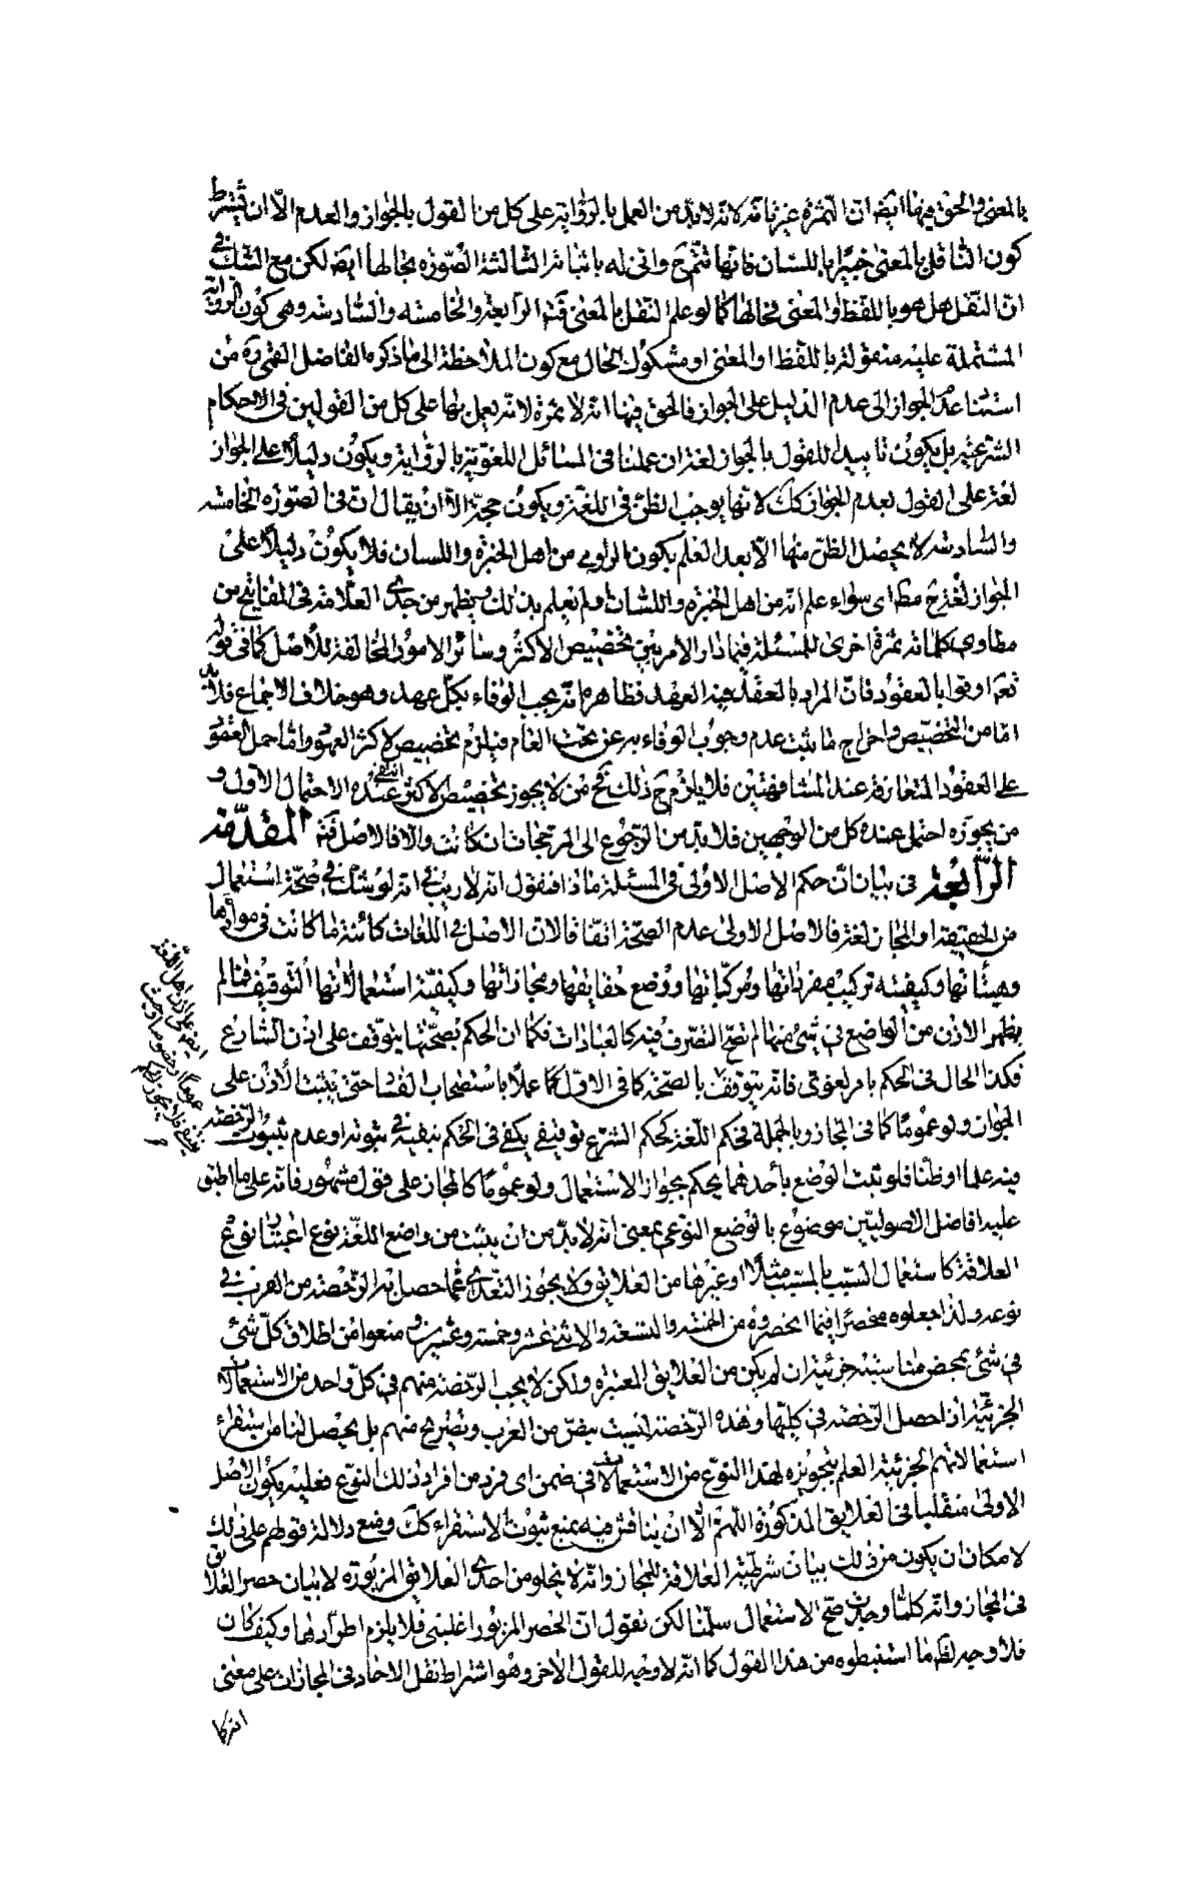 بالمعنى والحق فيها ايضا ان الثمرة غير بادية لانه لا بد من العمل بالرواية على كل من القول بالجواز والعدم الا ان يشترط
كون الناقل بالمعنى خبيرا باللسان فانها تثمر ح وانى له باثباته الثالثة الصورة بحالها ايضا لكن مع الشك في
ان النقل هل هو باللفظ والمعنى فحالها كما لو علم النقل بالمعنى فتد الرابعة والخامسة والسادسة وهى كون الرواية
المشتملة عليه منقولة باللفظ او المعنى او مشكوك الحال مع كون الملاحظة الى ما ذكره الفاضل القمى ره من
استناد عدم الجواز الى عدم الدليل على الجواز فالحق فيها انه لا ثمرة لانه يعمل بها على كل من القولين في الاحكام
الشرعية بل يكون تاييدا للقول بالجواز لغة ان عملنا فى المسائل اللغوية بالرواية ويكون دليلا على الجواز
لغة على القول بعدم الجواز كك لانها يوجب الظن فى اللغة ويكون حجة الا ان يقال ان فى الصورة الخامسة
والسادسة لا يحصل الظن منها الا بعد العلم بكون الراوى من اهل الخبرة واللسان فلا يكون دليلا على
الجواز لغة ح مط اى سواء علم انه من اهل الخبرة واللسان او لم يعلم بذلك ويظهر من جدى العلامة فى المفاتيح من
مطاوى كلماته ثمرة اخرى للمسئلة فيما دار الامر بين تخصيص الاكثر وسائر الامور المخالفة للاصل كما فى قوله
تعم اوفوا بالعقود فان المراد بالعقد فيه العهد فظاهره انه يجب الوفاء بكل عهد وهو خلاف الاجماع فلا بد
اما من التخصيص واخراج ما يثبت عدم وجوب الوفاء به عن تحت العام فيلزم تخصيص لاكثر العموم واما حمل العقود
على العقود المتعارفة عند المشافهين فلا يلزم ح ذلك فح من لا يجوز تخصيص الاكثر عنده انتفى الاحتمال الاول و
من يجوزه احتمل عنده كل من الوجهين فلا بد من الرجوع الى المرجحات ان كانت والا فالاصل فتد المقدمة
الرابعة فى بيان ان حكم الاصل الاولى فى المسئلة ماذا فنقول انه لا ريب فى انه لو شك فى صحة استعمال
من الحقيقة او المجاز لغة فالاصل الاولى عدم الصحة اتفاقا لان الاصل فى اللغات كائنة ما كانت فى موادها
وهيئاتها وكيفية تركيب مفرداتها ومركباتها ووضع حقايقها ومجازاتها وكيفية استعمالاتها التوقيف فما لم
يظهر الاذن من الواضع فى شئ منها لم تصح التصرف فيه كالعبادات فكما ان الحكم بصحتها يتوقف على اذن الشارع
فكذا الحال فى الحكم بامر لغوى فانه يتوقف بالصحة كما فى الاول عملا باستصحاب الفساد حتى يثبت الاذن على
الجواز ولو عموما كما فى المجاز وبالجملة فحكم اللغة كحكم الشرع توقيفى يكفى فى الحكم بنفيه فى ثبوته او عدم ثبوت الرخصة
فيه علما او ظنا فلو ثبت الوضع بأحدهما يحكم بجواز الاستعمال ولو عموما كالمجاز على قول مشهور فانه على ما اطبق
عليه افاضل الاصوليين موضوع بالوضع النوعى بمعنى انه لا بد من ان يثبت من واضع اللغة نوع اعتبار نوع
العلاقة كاستعمال السبب بالمسبب مثلا او غيرها من العلايق ولا يجوز التعدى عما حصل به الرخصة من العرب فى
نوعه ولذا جعلوه منحصرا فيما انحصروه من الخمسة والتسعة والاثنى عشر وخمسة وعشرين ومنعوا من اطلاق كل شئ
فى شئ بمحض مناسبة جزئية ان لم يكن من العلايق المعتبرة ولكن لا يجب الرخصة منهم فى كل واحد من الاستعمالات
الجزئية اذا حصل الرخصة فى كليها وهذه الرخصة ليست بنص من العرب وتصريح منهم بل يحصل لنا من استقراء
استعمالاتهم الجزئية العلم بتجويزه لهذا النوع من الاستعمالات فى ضمن اى فرد من افراد ذلك النوع فعليه يكون الاصل
الاولى منقلبا فى العلايق المذكورة اللهم الا ان يناقش فيه بمنع ثبوت الاستقراء كك ومنع دلالة قولهم على ذلك
لامكان ان يكون من ذلك بيان شرطية العلاقة للمجاز وانه لا يخلو من احدى العلايق المزبورة لا بيان حصر العلايق
فى المجاز وانه كلما وجدت صح الاستعمال سلمنا لكن نقول ان الحصر المزبور اغلبى فلا يلزم اطرادها وكيف كان
فلا وجه لفهم ما استنبطوه من هذا القول كما انه لا وجه للقول الاخر وهو اشتراط نقل الاحاد فى المجازات على معنى
انه كما
عموما او خصوصا وحيث
ينتفى فلا يجوز الحكم